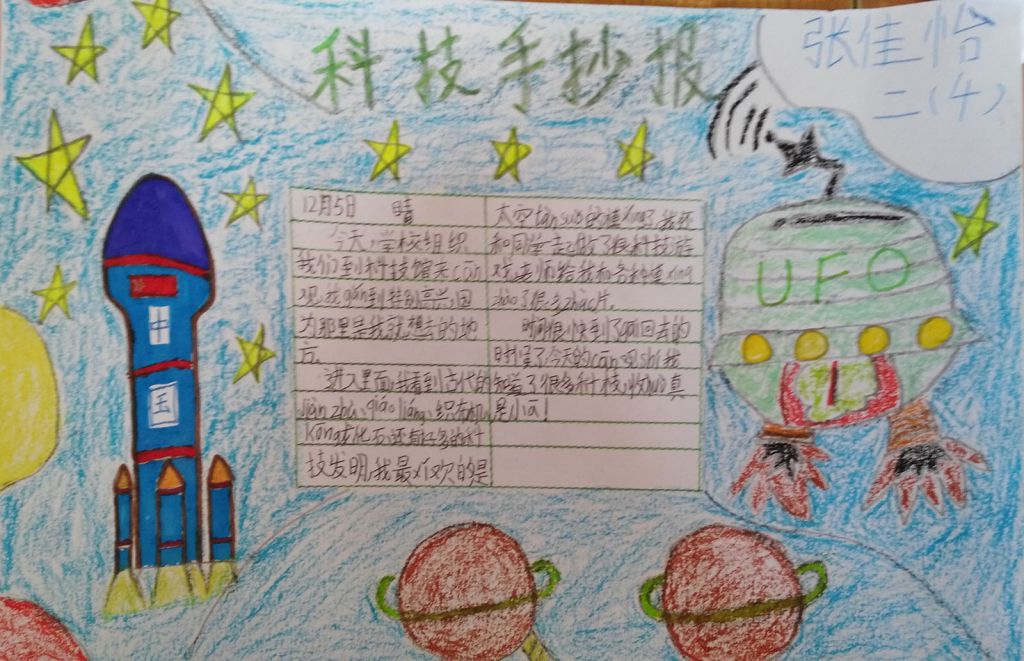 科技手抄报
张佳怡
二(4)
中
国
UFO
12月5日 晴
今天,学校组织
我们到科技馆去cān
观,我gǎn到特别高兴,因
为那里是我就想去的地
方。
进入里面,我看到古代的
jiàn zhù、qiáo liáng、织布机
kǒng龙化石,还有好多的科
技发明,我最喜欢的是
太空
和同学一起做了很多科技游
戏,老师给我和各种
zhào了很多zhào片。
时间很快到了 回去的
时候了,今天的cān观 shǐ我
知道了很多科技 真
是